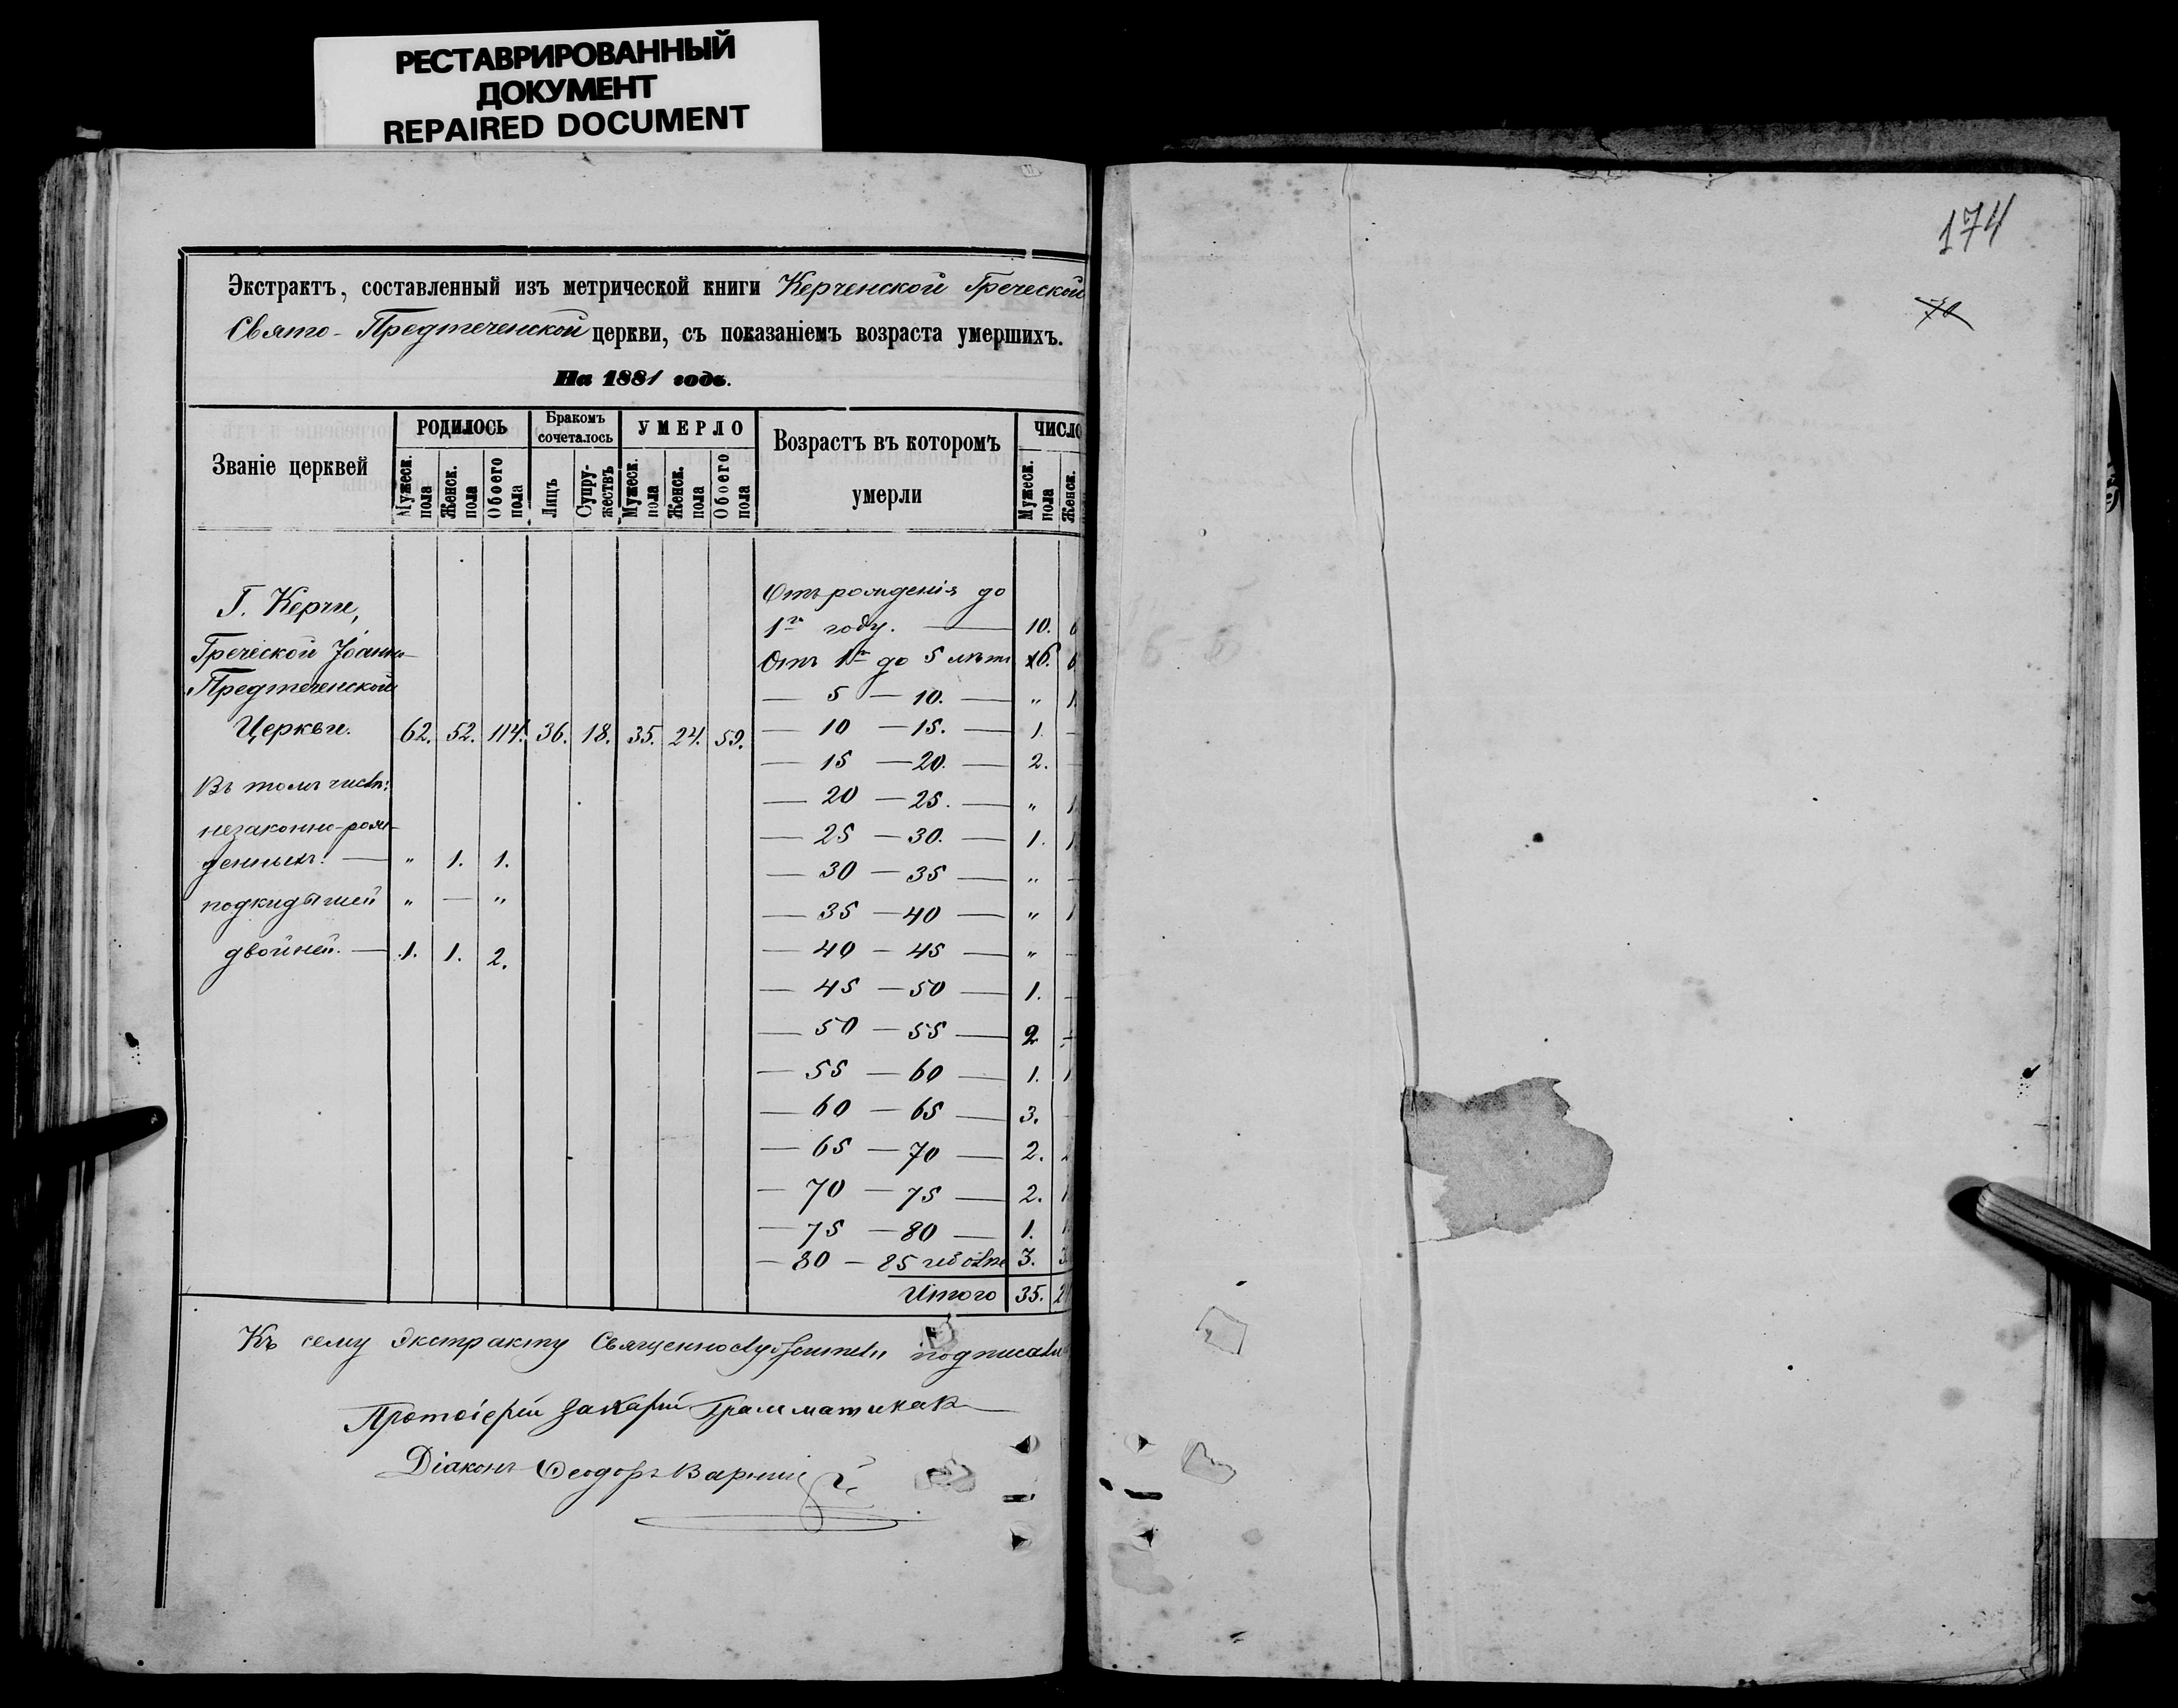 РЕСТАВРИРОВАННЫЙ
ДОКУМЕНТ
REPAIRED DOCUMENT
174
70
Экстрактъ, составленный изъ метрической книги Керченской Греческой
Свято-Предтеченской церкви, съ показаніемъ возраста умершихъ.
На 1881 годъ.
Званіе церквей
РОДИЛОСЬ
Бракомъ сочеталось
УМЕРЛО
Возрастъ въ которомъ умерли
ЧИСЛО
Мужеск. пола Женск. пола Обоего пола Лицъ Супружествъ Мужеск. пола Женск. пола Обоего пола Мужеск. пола Женск.
Г. Керчи,
Греческой Іоанно-
Предтеченской
Церкви. 62. 52. 114. 36. 18. 35. 24. 59.
Въ томъ числѣ:
незаконно-рож-
денныхъ. — " 1. 1.
подкидышей " — "
двойней. — 1. 1. 2.
Отъ рожденія до
1го году. — 10. 6
Отъ 1го до 5 лѣтъ 6. 6
— 5 — 10. — " 1.
— 10 — 15. — 1. —
— 15 — 20. — 2. —
— 20 — 25. — " 1.
— 25 — 30. — 1. 1.
— 30 — 35 — " —
— 35 — 40 — " 1
— 40 — 45 — " —
— 45 — 50 — 1. —
— 50 — 55 — 2 —
— 55 — 60 — 1. 1.
— 60 — 65 — 3. —
— 65 — 70 — 2. 2
— 70 — 75 — 2. 1
— 75 — 80 — 1. 1.
— 80 — 85 и болѣе 3. 3
Итого 35. 24
Къ сему экстракту Священнослужители подписали
Протоіерей Захарій Грамматикакі
Діаконъ Ѳеодоръ